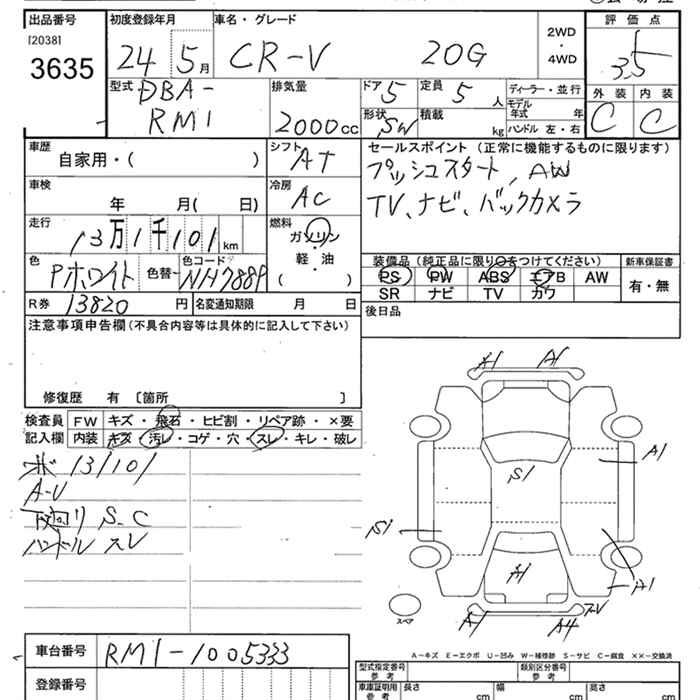 出品番号
[2038]
3635
初度登録年月
24 5月
車名・グレード
CR-V 20G
2WD
・
4WD
評価点
3.5
外装 内装
C C
型式
DBA-
RM1
排気量
2000cc
ドア 5
定員 5人
形状 SW
積載 kg
ディーラー・並行
モデル年式 年
ハンドル 左・右
車歴
自家用・( )
シフト
AT
車検
年 月( 日)
冷房
AC
走行
13万1千101km
燃料
ガソリン
・
軽・油
( )
色
Pホワイト
色替
色コード
NH788P
R券 13820円
名変通知期限 月 日
セールスポイント (正常に機能するものに限ります)
プッシュスタート, AW
TV、ナビ、バックカメラ
装備品(純正品に限り○をつけてください)
新車保証書
PS PW ABS エアB AW
SR ナビ TV カワ
有・無
後日品
注意事項申告欄(不具合内容等は具体的に記入して下さい)
修復歴 有 [箇所 ]
検査員
記入欄
FW キズ・飛石・ヒビ割・リペア跡・×要
内装 キズ・汚レ・コゲ・穴・スレ・キレ・破レ
ボ 131101
A-U
下回リ S-C
ハンドル スレ
A1 A1
S1
A1
S1
A1
A1
A1 A4
スペア
A-キズ E-エクボ U-凹み W-補修跡 S-サビ C-腐食 XX-交換済
車台番号
RM1-1005333
登録番号
型式指定番号
参考
類別区分番号
参考
車庫証明用
参考
長さ cm
幅 cm
高さ cm